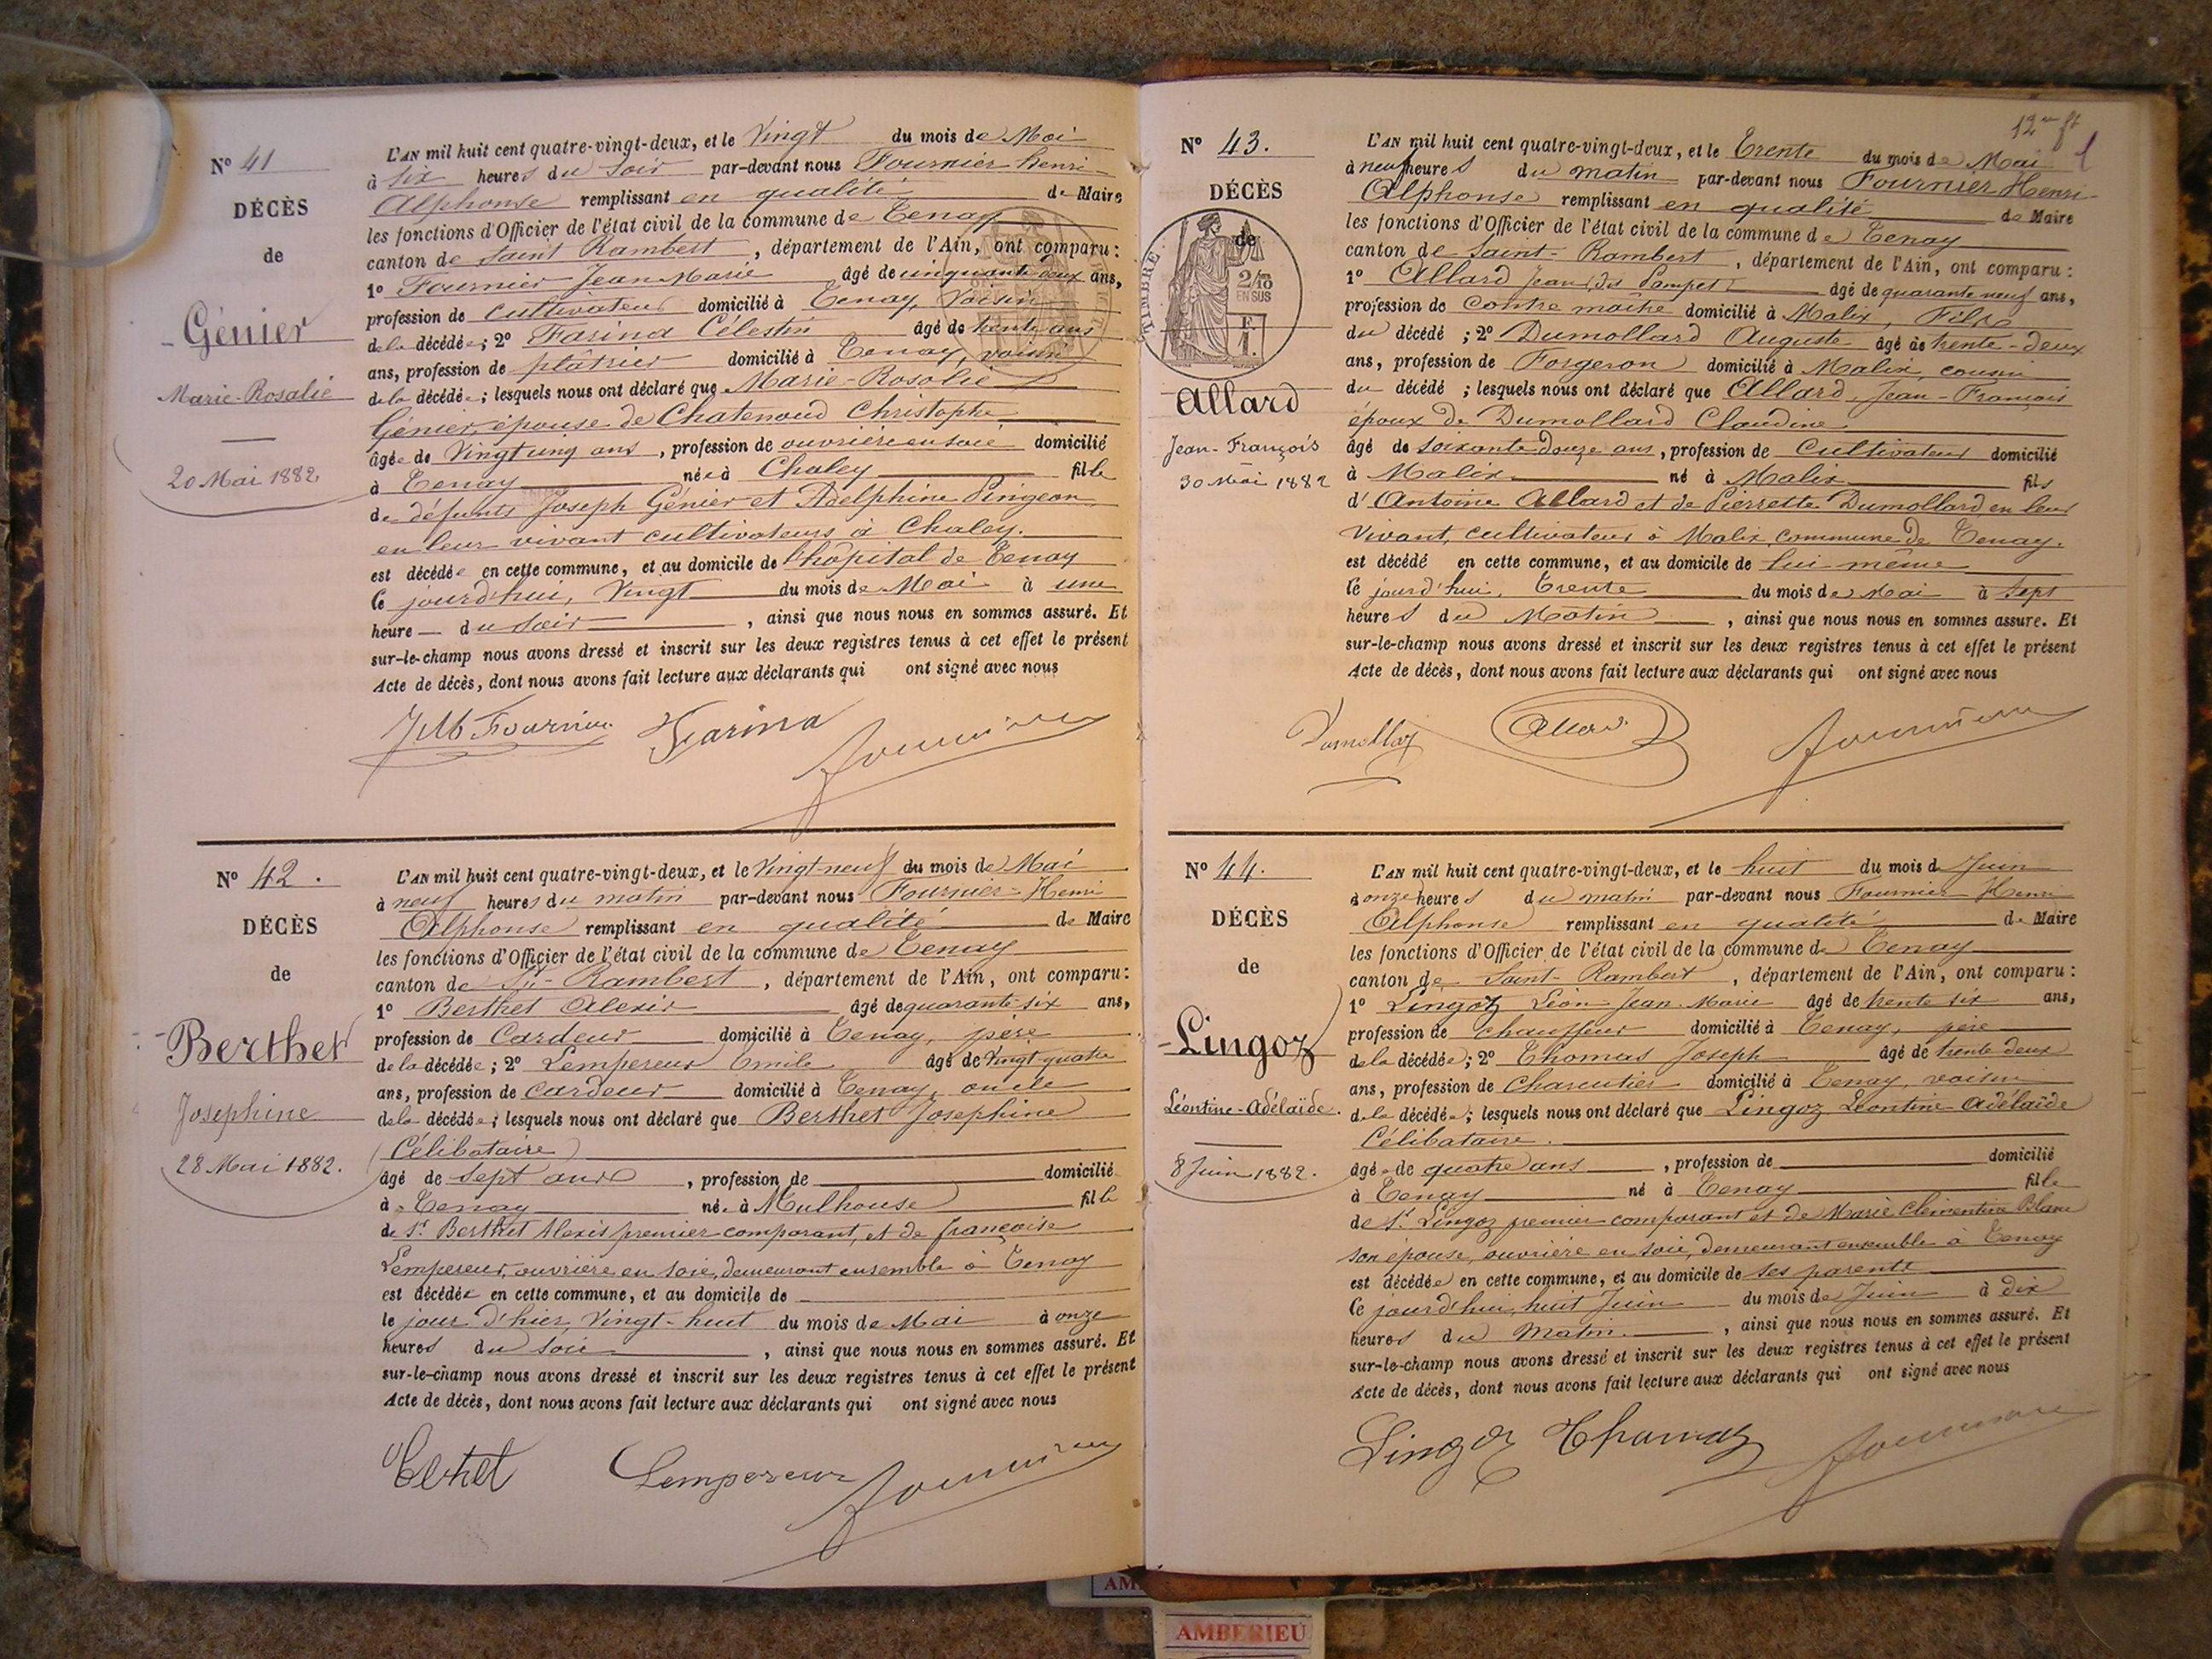 N° 41
DÉCÈS
de
Génier
Marie-Rosalie
20 Mai 1882.
L'AN mil huit cent quatre-vingt-deux, et le Vingt du mois de Mai
à six heures du soir par-devant nous Fournier Henri
Alphonse remplissant en qualité de Maire
les fonctions d'Officier de l'état civil de la commune de Tenay
canton de Saint Rambert, département de l'Ain, ont comparu :
1° Fournier Jean Marie âgé de cinquante deux ans,
profession de cultivateur domicilié à Tenay, voisin
de la décédée ; 2° Farina Célestin âgé de trente ans
ans, profession de plâtrier domicilié à Tenay, voisin
de la décédée ; lesquels nous ont déclaré que Marie-Rosalie
Génier épouse de Chatenoud Christophe
âgée de Vingt cinq ans, profession de ouvrière en soie domicilié
à Tenay née à Chaley fille
de défunts Joseph Génier et Adelphine Pirigeon
en leur vivant cultivateurs à Chaley.
est décédée en cette commune, et au domicile de l'hôpital de Tenay
le jourd'hui, Vingt du mois de Mai à une
heure du soir, ainsi que nous nous en sommes assuré. Et
sur-le-champ nous avons dressé et inscrit sur les deux registres tenus à cet effet le présent
Acte de décès, dont nous avons fait lecture aux déclarants qui ont signé avec nous
JM Fournier Farina Fournier
N° 42.
DÉCÈS
de
Berthet
Josephine
28 Mai 1882.
L'AN mil huit cent quatre-vingt-deux, et le Vingt-neuf du mois de Mai
à neuf heures du matin par-devant nous Fournier-Henri
Alphonse remplissant en qualité de Maire
les fonctions d'Officier de l'état civil de la commune de Tenay
canton de St-Rambert, département de l'Ain, ont comparu :
1° Berthet Alexis âgé de quarante-six ans,
profession de Cardeur domicilié à Tenay, père
de la décédée ; 2° Lempereur Emile âgé de Vingt-quatre
ans, profession de cardeur domicilié à Tenay, oncle
de la décédée ; lesquels nous ont déclaré que Berthet Josephine
Célibataire
âgé de sept ans, profession de domicilié
à Tenay née à Mulhouse fille
de Sr Berthet Alexis premier comparant, et de françoise
Lempereur, ouvrière en soie, demeurant ensemble à Tenay
est décédée en cette commune, et au domicile de
le jour d'hier, Vingt-huit du mois de Mai à onze
heures du soir, ainsi que nous nous en sommes assuré. Et
sur-le-champ nous avons dressé et inscrit sur les deux registres tenus à cet effet le présent
Acte de décès, dont nous avons fait lecture aux déclarants qui ont signé avec nous
Berthet Lempereur Fournier
N° 43.
DÉCÈS
de
TIMBRE
2/10
EN SUS
Allard
Jean-François
30 Mai 1882
L'AN mil huit cent quatre-vingt-deux, et le Trente du mois de Mai
à neuf heures du matin par-devant nous Fournier Henri-
Alphonse remplissant en qualité de Maire
les fonctions d'Officier de l'état civil de la commune de Tenay
canton de Saint-Rambert, département de l'Ain, ont comparu :
1° Allard Jean dit Pampet âgé de quarante neuf ans,
profession de Contre maître domicilié à Malix, Fils
du décédé ; 2° Dumollard Auguste âgé de trente-deux
ans, profession de Forgeron domicilié à Malix, cousin
du décédé ; lesquels nous ont déclaré que Allard, Jean-François
époux de Dumollard Claudine
âgé de soixante-douze ans, profession de Cultivateur domicilié
à Malix né à Malix fils
d'Antoine Allard et de Pierrette Dumollard en leur
vivant, cultivateurs à Malix, commune de Tenay.
est décédé en cette commune, et au domicile de lui-même
le jourd'hui, Trente du mois de Mai à sept
heures du Matin, ainsi que nous nous en sommes assuré. Et
sur-le-champ nous avons dressé et inscrit sur les deux registres tenus à cet effet le présent
Acte de décès, dont nous avons fait lecture aux déclarants qui ont signé avec nous
Dumollar Allard Fournier
N° 44.
DÉCÈS
de
Lingoz
Léontine-Adélaïde.
8 Juin 1882.
L'AN mil huit cent quatre-vingt-deux, et le huit du mois d Juin
à onze heures du matin par-devant nous Fournier Henri
Alphonse remplissant en qualité de Maire
les fonctions d'Officier de l'état civil de la commune de Tenay
canton de Saint-Rambert, département de l'Ain, ont comparu :
1° Lingoz Léon Jean Marie âgé de trente six ans,
profession de chauffeur domicilié à Tenay, père
de la décédée ; 2° Thomas Joseph âgé de trente deux
ans, profession de charcutier domicilié à Tenay, voisin
de la décédée ; lesquels nous ont déclaré que Lingoz Léontine Adélaïde
Célibataire.
âgée de quatre ans, profession de domicilié
à Tenay né à Tenay fille
de Sr Lingoz premier comparant et de Marie Clémentine Blanc
son épouse, ouvrière en soie, demeurant ensemble à Tenay
est décédée en cette commune, et au domicile de ses parents
le jourd'hui, huit Juin du mois de Juin à dix
heures du Matin, ainsi que nous nous en sommes assuré. Et
sur-le-champ nous avons dressé et inscrit sur les deux registres tenus à cet effet le présent
Acte de décès, dont nous avons fait lecture aux déclarants qui ont signé avec nous
Lingoz Thomas Fournier
AMBERIEU